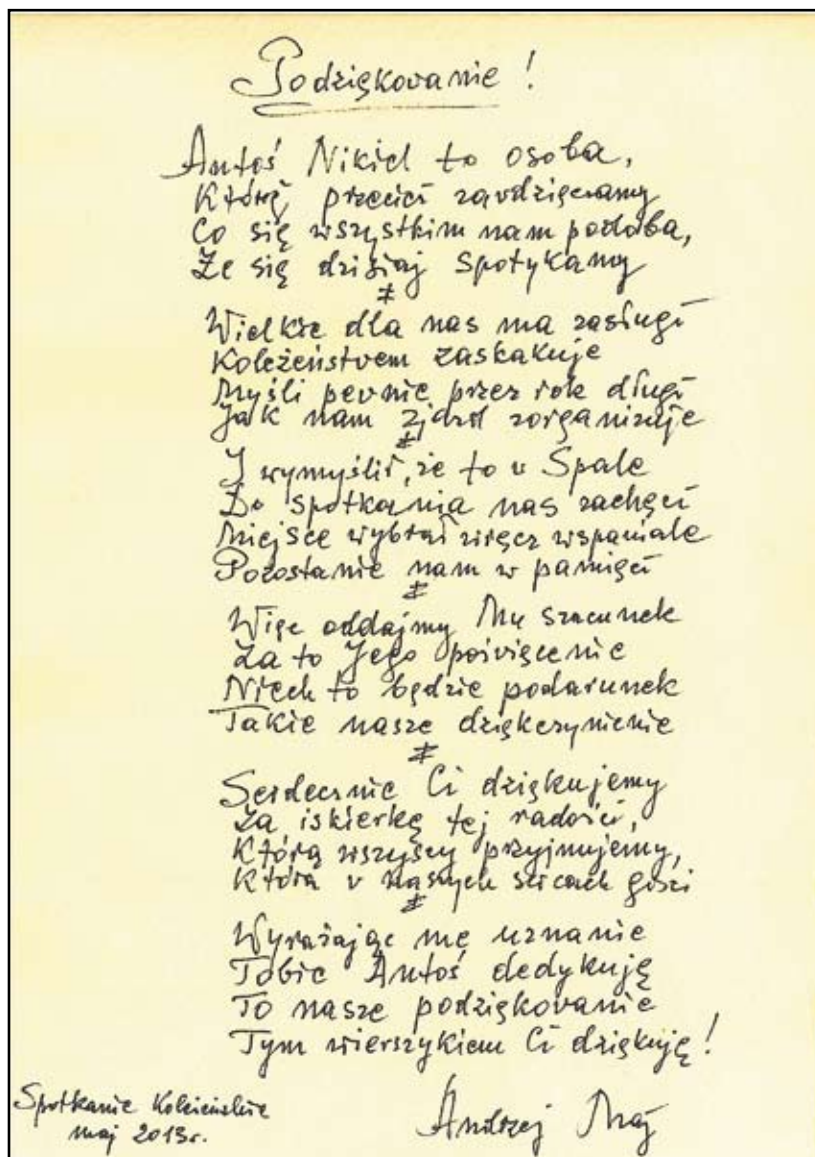 Podziękowanie!
Antoś Nikiel to osoba,
Którą przecież zawdzięczamy
Co się wszystkim nam podoba,
Że się dzisiaj spotykamy
*
Wielkie dla nas ma zasługi
Koleżeństwem zaskakuje
Myśli pewnie przez rok długi
Jak nam zjazd zorganizuje
*
I wymyślił, że to w Spale
Do spotkania nas zachęci
Miejsce wybrał wręcz wspaniale
Pozostanie nam w pamięci
*
Więc oddajmy Mu szacunek
Za to Jego poświęcenie
Niech to będzie podarunek
Takie nasze dziękczynienie
*
Serdecznie Ci dziękujemy
Za iskierkę tej radości,
Którą wszyscy przyjmujemy,
Która w naszych sercach gości
*
Wyrażając me uznanie
Tobie Antoś dedykuję
To nasze podziękowanie
Tym wierszykiem Ci dziękuję!
Spotkanie Koleżeńskie
maj 2013r.
Andrzej Maj